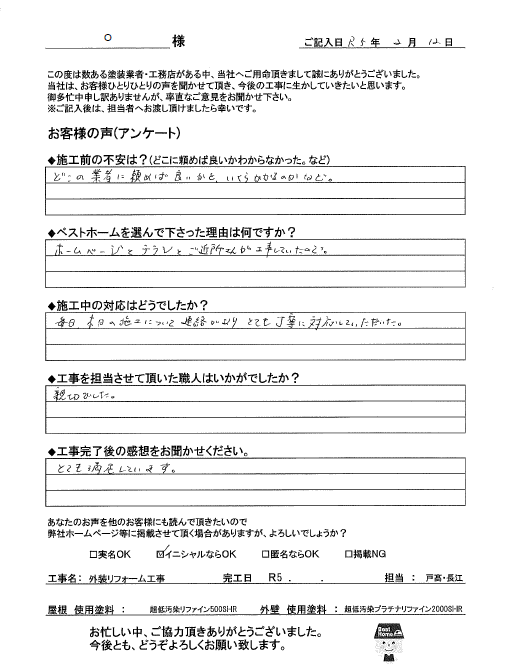 O 様
ご記入日 R5 年 2 月 12 日
この度は数ある塗装業者・工務店がある中、当社へご用命頂きまして誠にありがとうございました。
当社は、お客様ひとりひとりの声を聞かせて頂き、今後の工事に生かしていきたいと思います。
御多忙中申し訳ありませんが、率直なご意見をお聞かせ下さい。
※ご記入後は、担当者へお渡し頂けましたら幸いです。
お客様の声(アンケート)
◆施工前の不安は?(どこに頼めば良いかわからなかった。など)
どこの業者に頼めば良いかと、いくらかかるのかなど。
◆ベストホームを選んで下さった理由は何ですか?
ホームページとチラシとご近所さんが工事していたので。
◆施工中の対応はどうでしたか?
毎日、本日の施工について連絡があり とても丁寧に対応していただいた。
◆工事を担当させて頂いた職人はいかがでしたか?
親切でした。
◆工事完了後の感想をお聞かせください。
とても満足しています。
あなたのお声を他のお客様にも読んで頂きたいので
弊社ホームページ等に掲載させて頂く場合がありますが、よろしいでしょうか?
□実名OK ☑イニシャルならOK □匿名ならOK □掲載NG
工事名: 外装リフォーム工事 完工日 R5 . . 担当 : 戸髙・長江
屋根 使用塗料 : 超低汚染リファイン500Si-IR 外壁 使用塗料 : 超低汚染プラチナリファイン2000Si-IR
お忙しい中、ご協力頂きありがとうございました。
今後とも、どうぞよろしくお願い致します。
Best Home